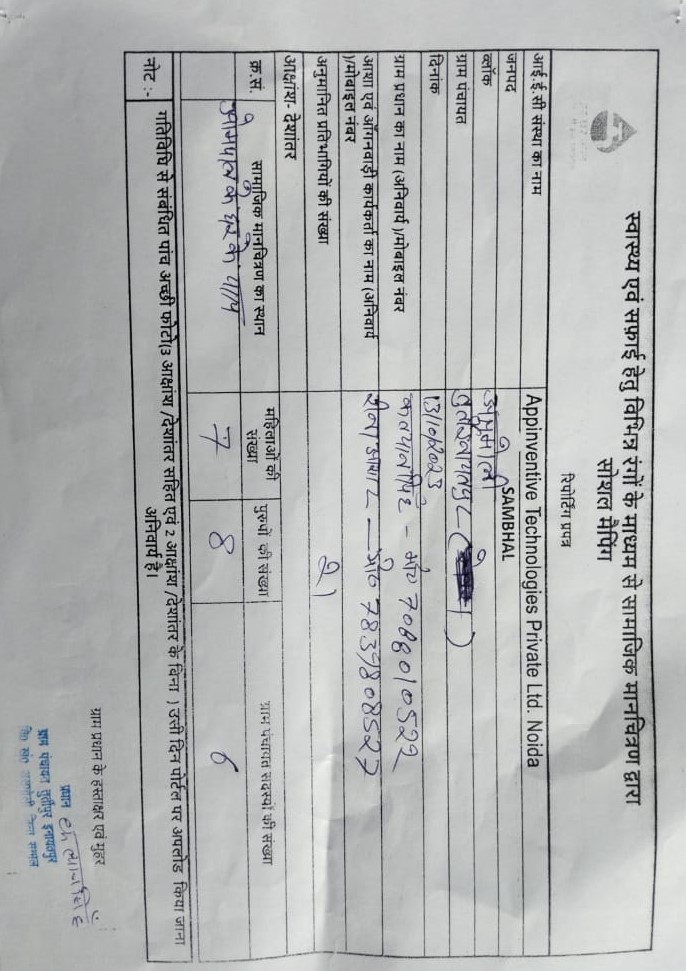 स्वास्थ्य एवं सफाई हेतु विभिन्न रंगों के माध्यम से सामाजिक मानचित्रण द्वारा
सोशल मैपिंग
रिपोर्टिंग प्रपत्र
आई.ई.सी संस्था का नाम Appinventive Technologies Private Ltd. Noida
जनपद SAMBHAL
ब्लॉक
ग्राम पंचायत
दिनांक
ग्राम प्रधान का नाम (अनिवार्य )/मोबाइल नंबर मो० 7088010522
आशा एवं आँगनवाड़ी कार्यकर्ता का नाम (अनिवार्य
)/मोबाइल नंबर मो० 7839808527
अनुमानित प्रतिभागियों की संख्या 21
आक्षांश- देशांतर
क्र.सं. सामाजिक मानचित्रण का स्थान महिलाओं की संख्या पुरुषों की संख्या ग्राम पंचायत सदस्यों की संख्या
के घर के पास 7 8 6
नोट :- गतिविधि से संबंधित पांच अच्छी फोटो(3 आक्षांश /देशांतर सहित एवं 2 आक्षांश /देशांतर के बिना ) उसी दिन पोर्टल पर अपलोड किया जाना
अनिवार्य है।
ग्राम प्रधान के हस्ताक्षर एवं मुहर
प्रधान
ग्राम पंचायत